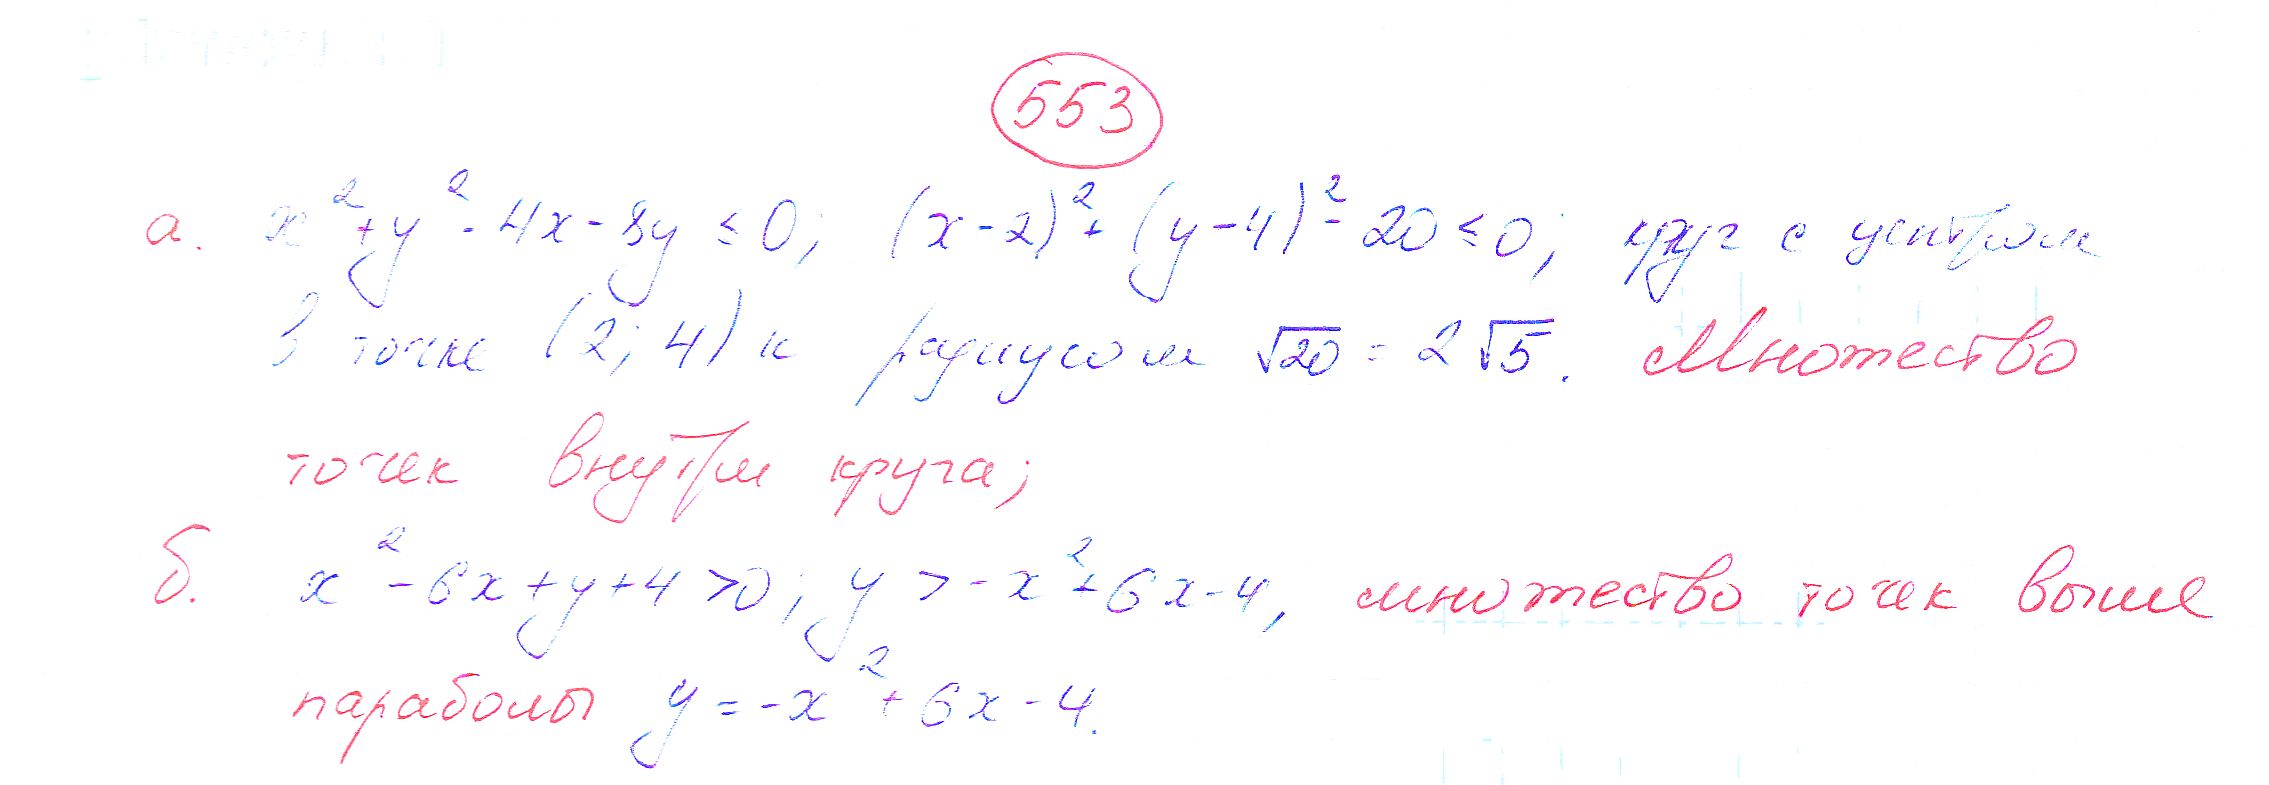 553
а. x²+y²-4x-8y ≤ 0; (x-2)²+(y-4)²-20 ≤ 0; круг с центром
в точке (2; 4) и радиусом √20 = 2√5. Множество
точек внутри круга;
б. x²-6x+y+4>0; y > -x²+6x-4, множество точек выше
параболы y = -x²+6x-4.